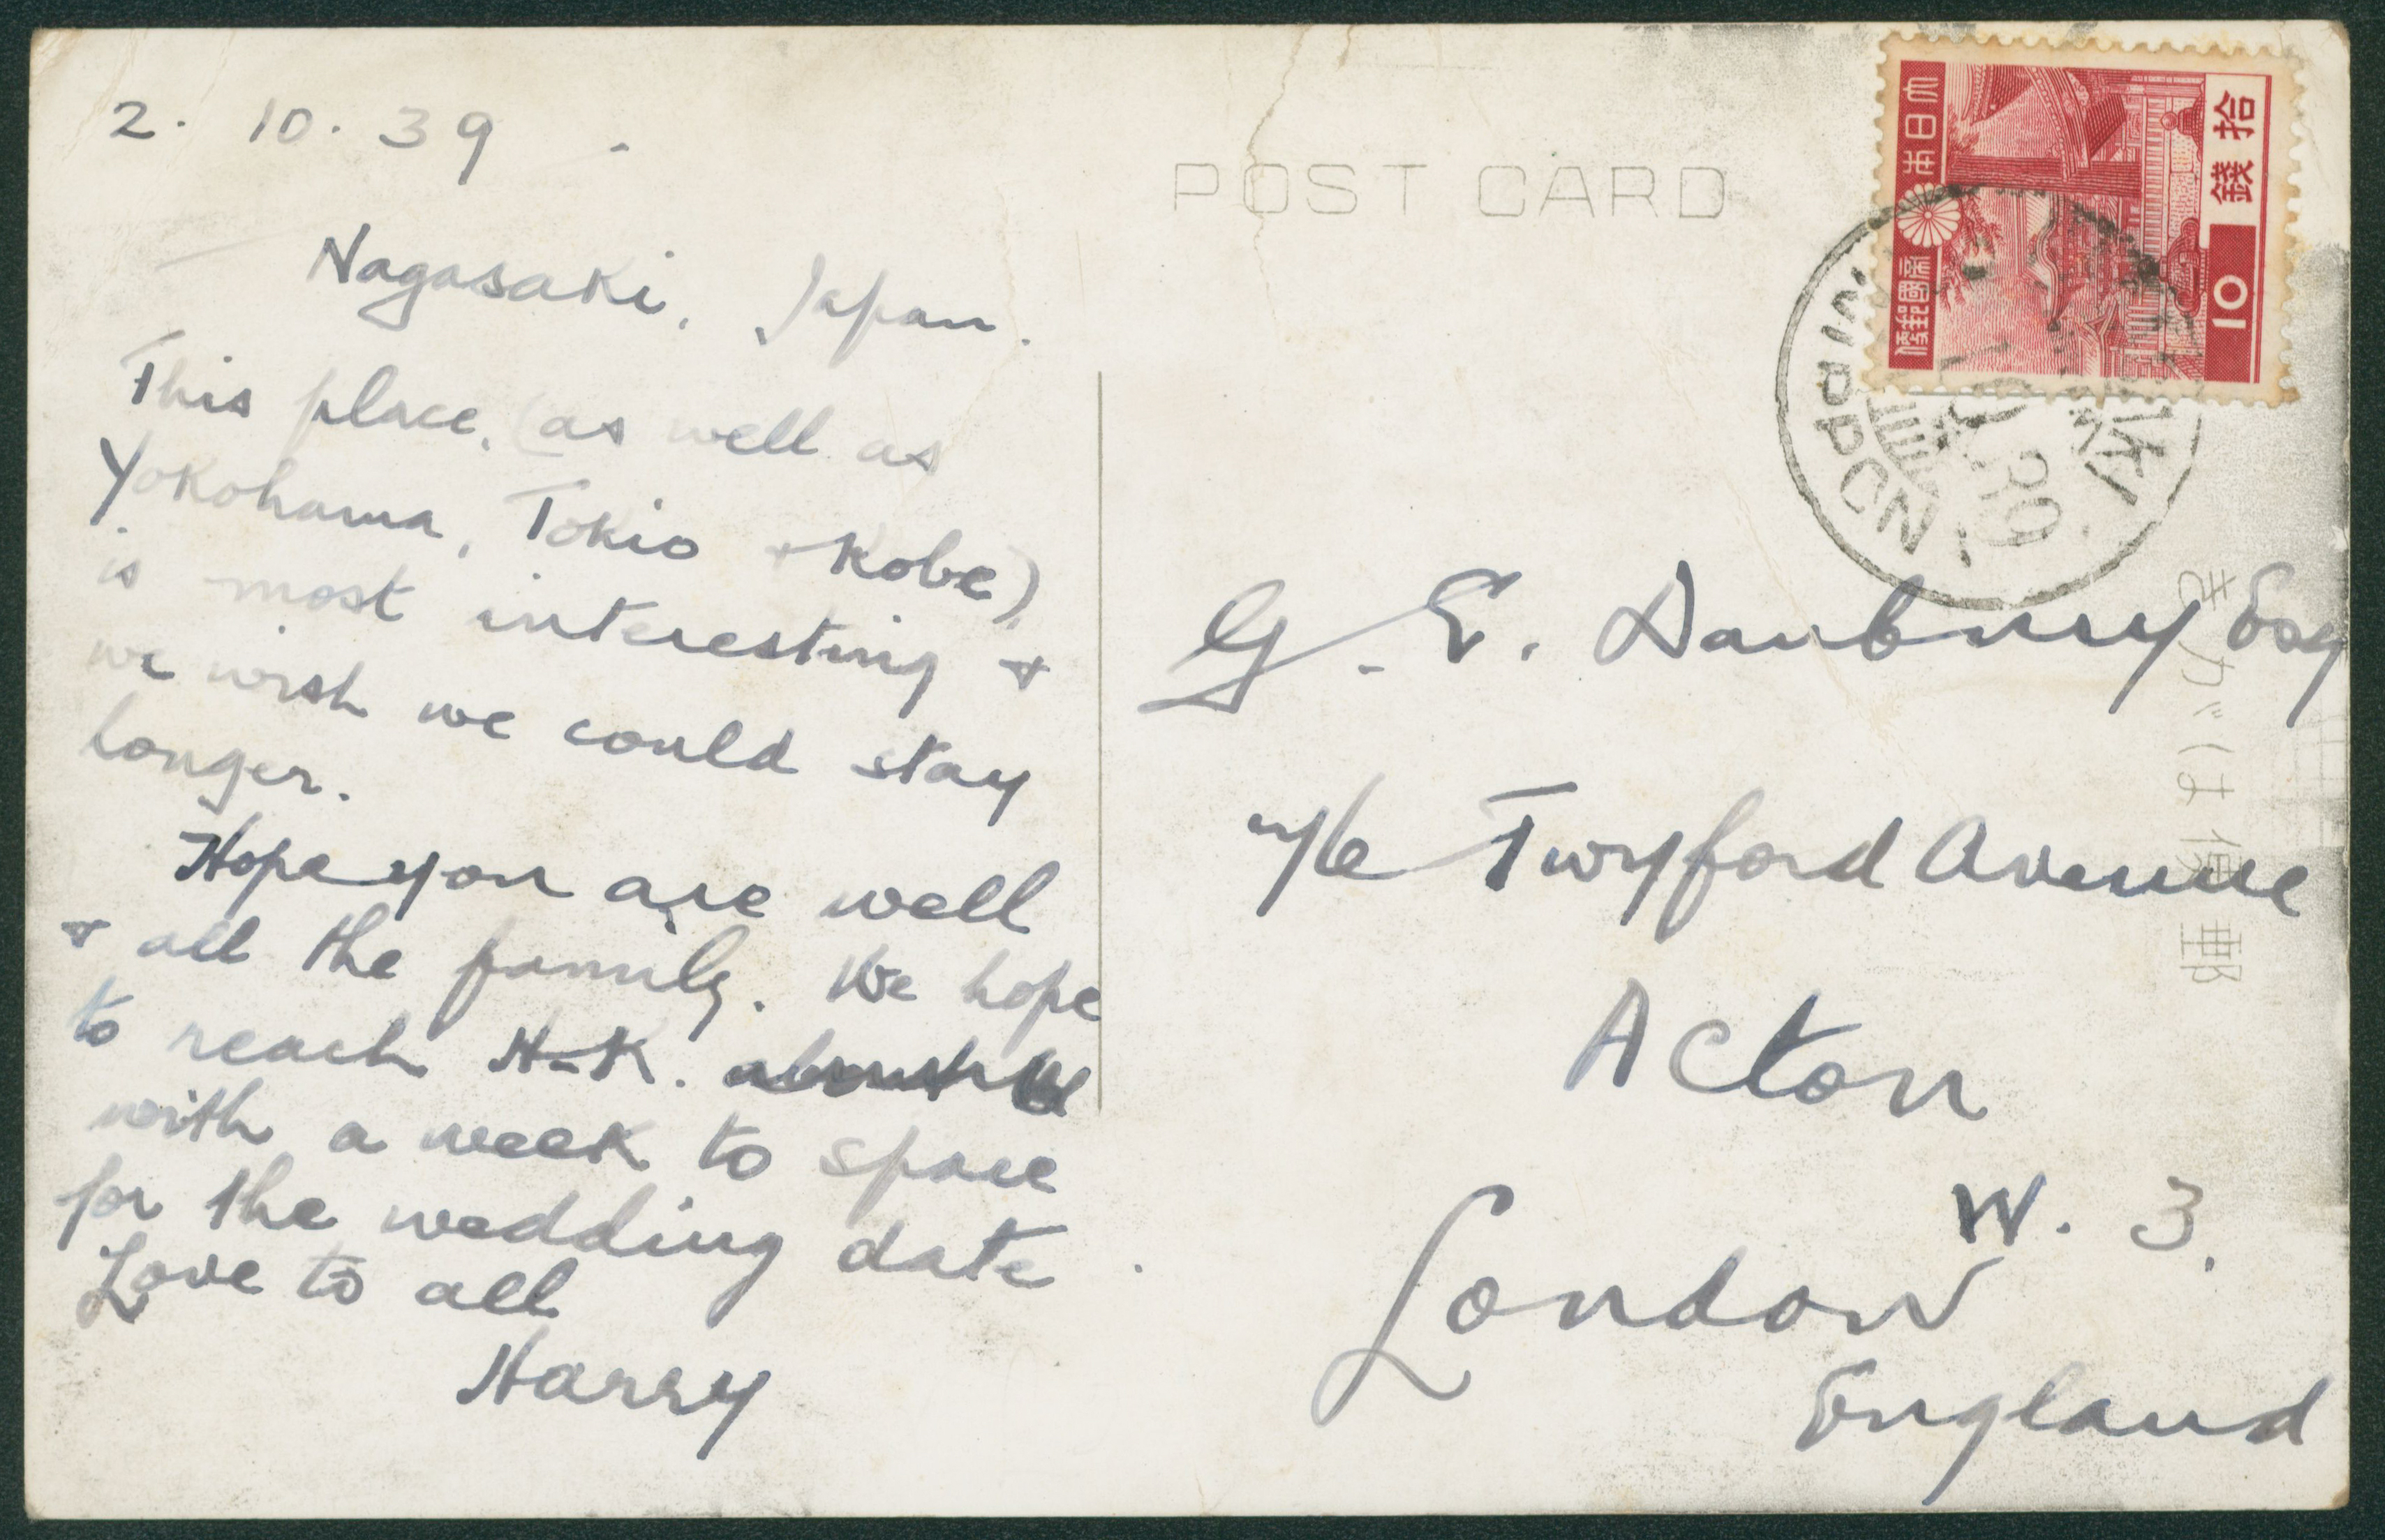 2. 10. 39.
Nagasaki, Japan.
This place, (as well as
Yokohama, Tokio + Kobe)
is most interesting +
we wish we could stay
longer.
Hope you are well
+ all the family. We hope
to reach H.K.
with a week to spare
for the wedding date
Love to all
Harry
POST CARD
大日本帝國郵便
拾錢
10
NIPPON
G. E. Danbury Esq
Twyford Avenue
Acton
W. 3.
London
England
郵便はがき